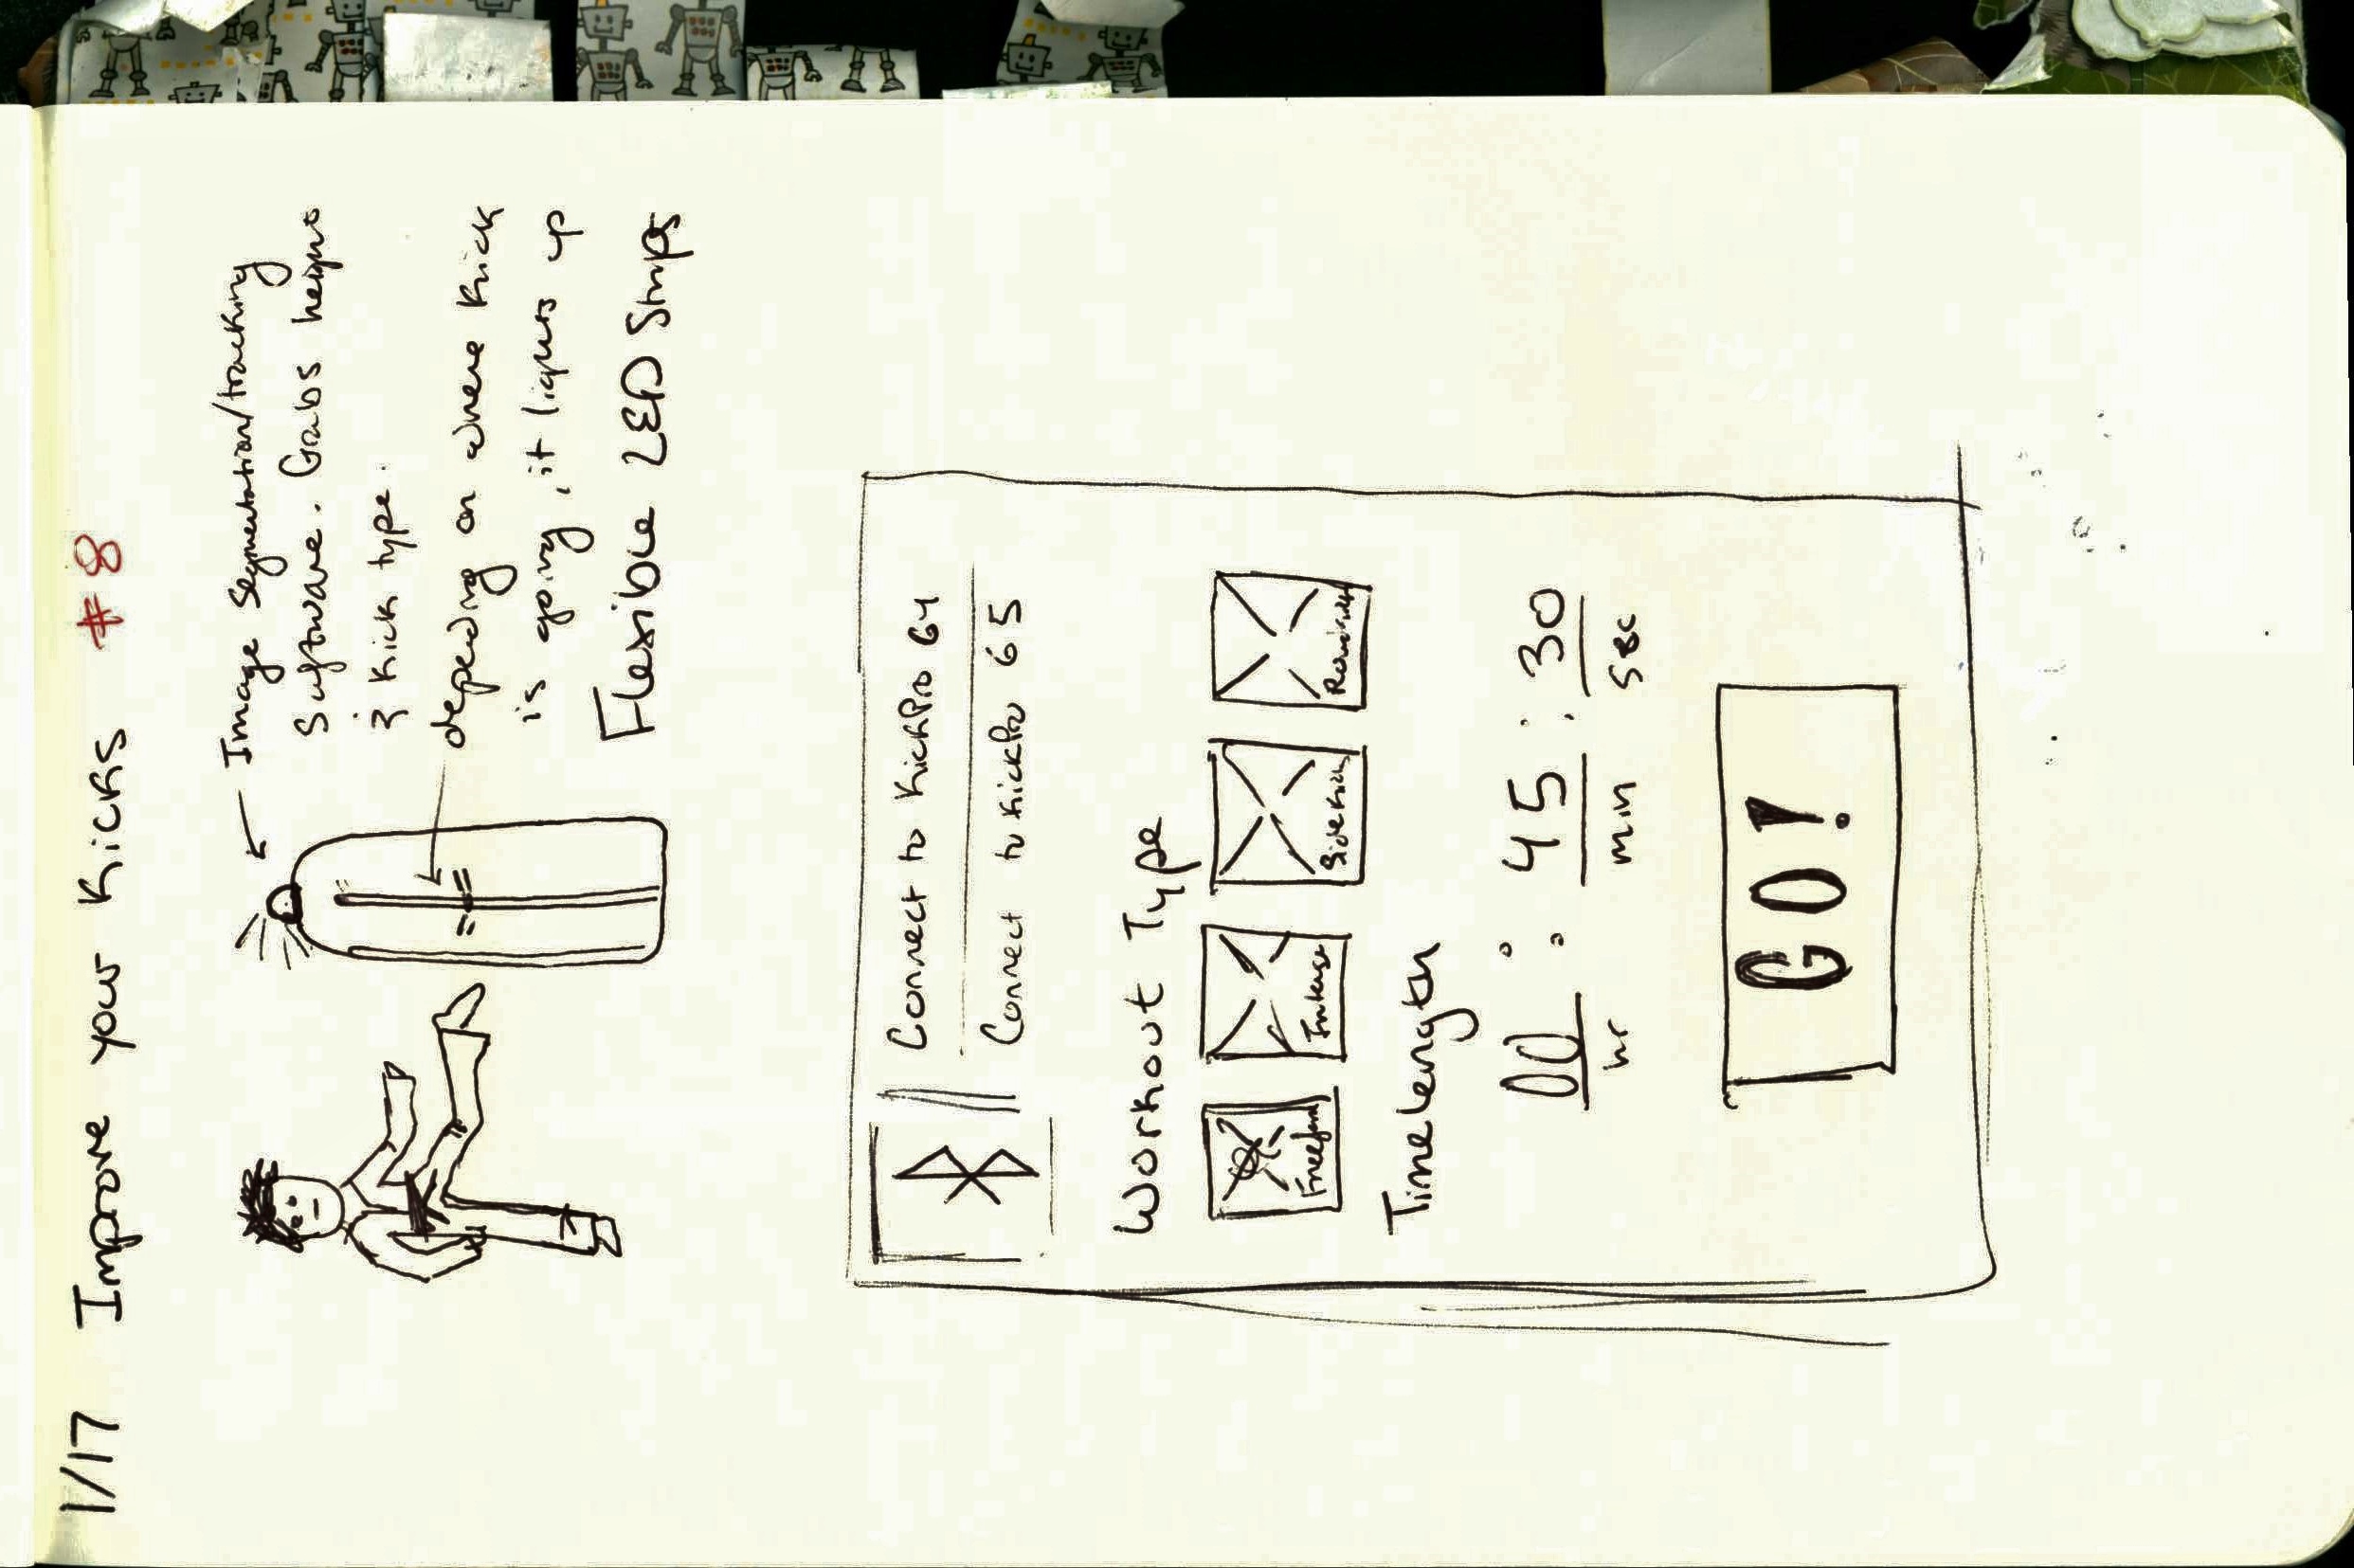 1/17 Improve your Kicks #8
Image Segmentation/tracking
Software. Grabs height
& kick type.
depending on where kick
is going, it lights up
Flexible LED Strips
Connect to KickPro 64
Connect to KickPro 65
Workout Type
Freeform
Intense
Side Kick
Time Length
00 : 45 : 30
hr min sec
GO!